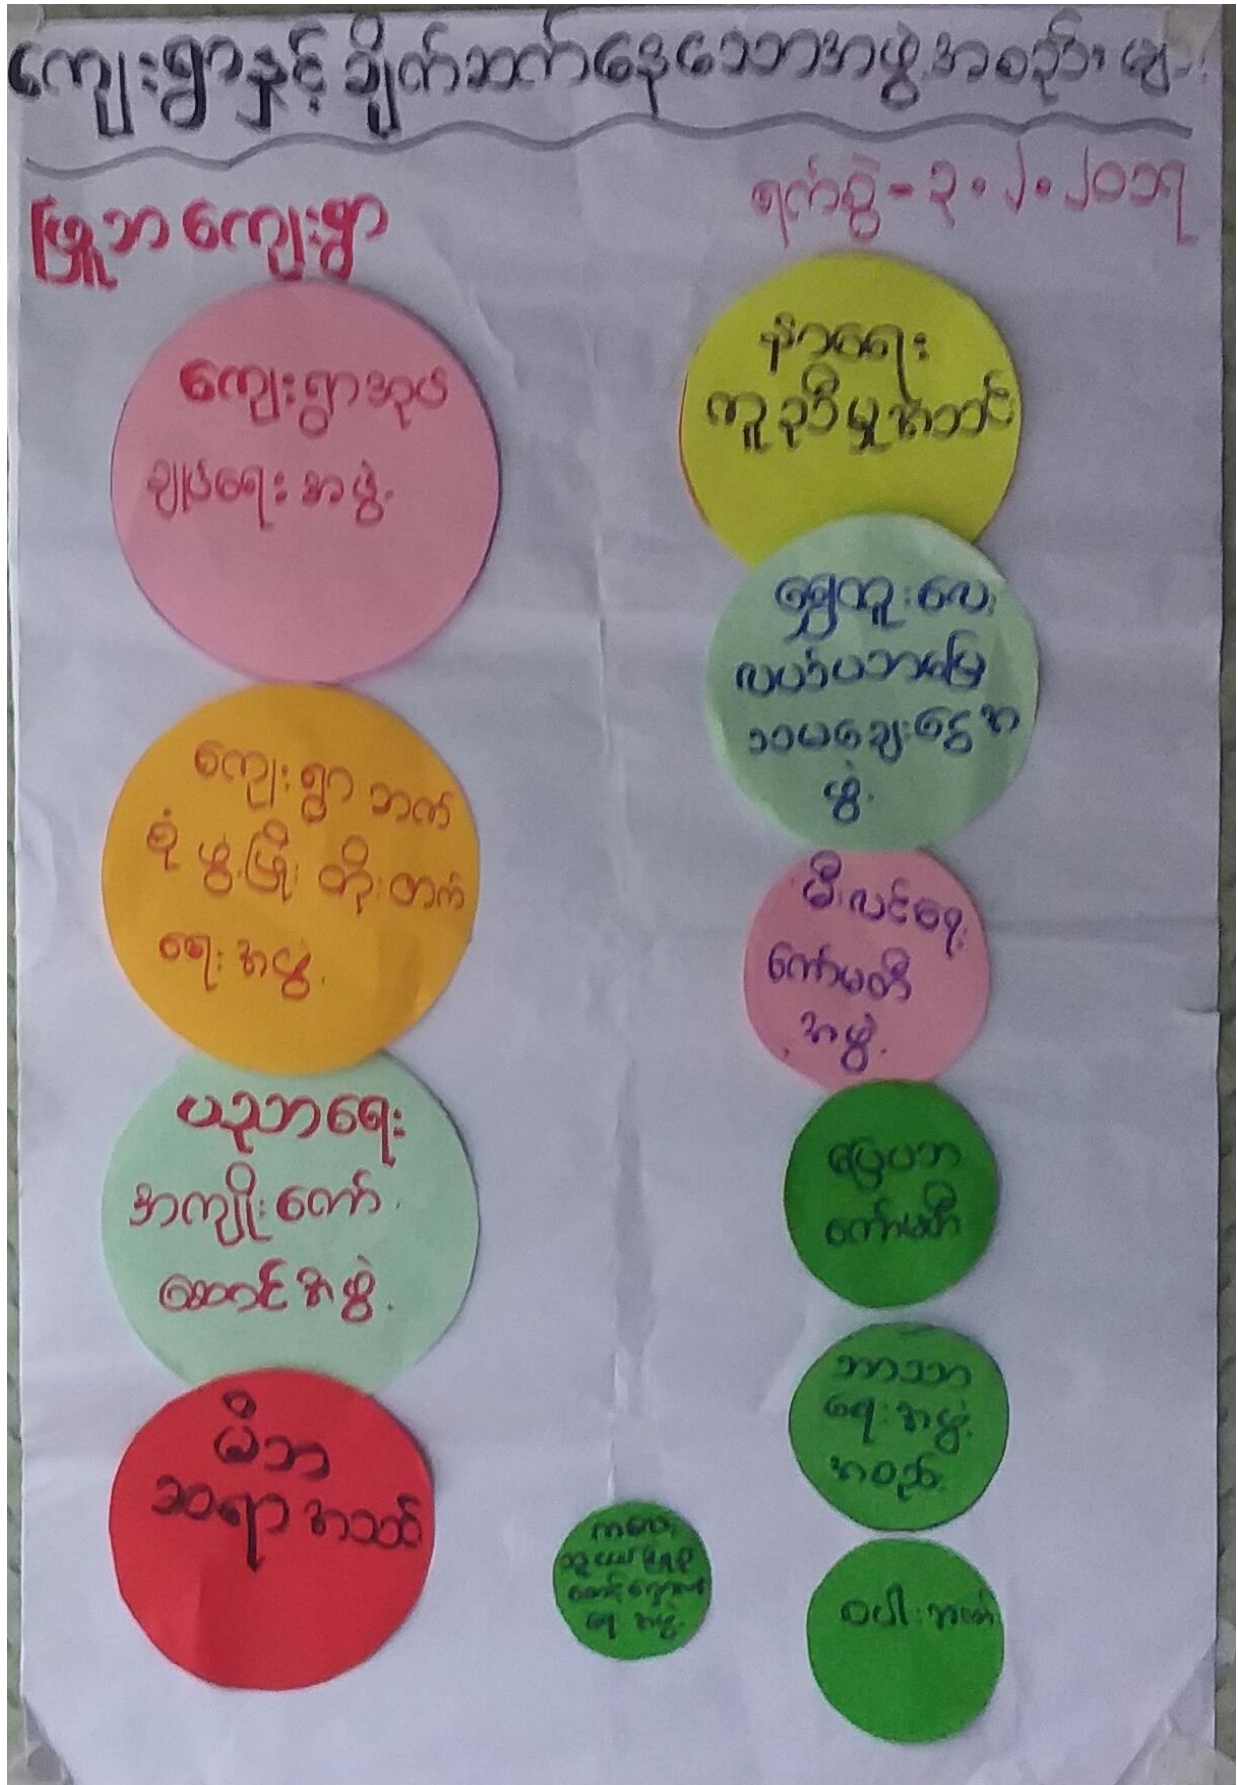 ကျေးရွာနှင့် ချိတ်ဆက်နေသောအဖွဲ့အစည်းများ
ရက်စွဲ - ၃.၂.၂၀၁၇
ဖြူဘ ကျေးရွာ
ကျေးရွာအုပ်
ချုပ်ရေး အဖွဲ့.
ကျေးရွာ ဘက်
စုံ ဖွံ့ဖြိုး တိုးတက်
ရေး အဖွဲ့.
ပညာရေး
အကျိုးတော်
ဆောင်အဖွဲ့.
မိဘ
ဆရာ အသင်း
နာရေး
ကူညီမှုအသင်း
ရွှေထူးလေး
လယ်ယာမြေ
သမချေးငွေအ
ဖွဲ့.
မီးလင်းရေး
ကော်မတီ
အဖွဲ့.
မြေယာ
ကော်မတီ
ဘာသာ
ရေး အဖွဲ့.
အစည်း
ကလေး
ရေး အဖွဲ့.
စပါး